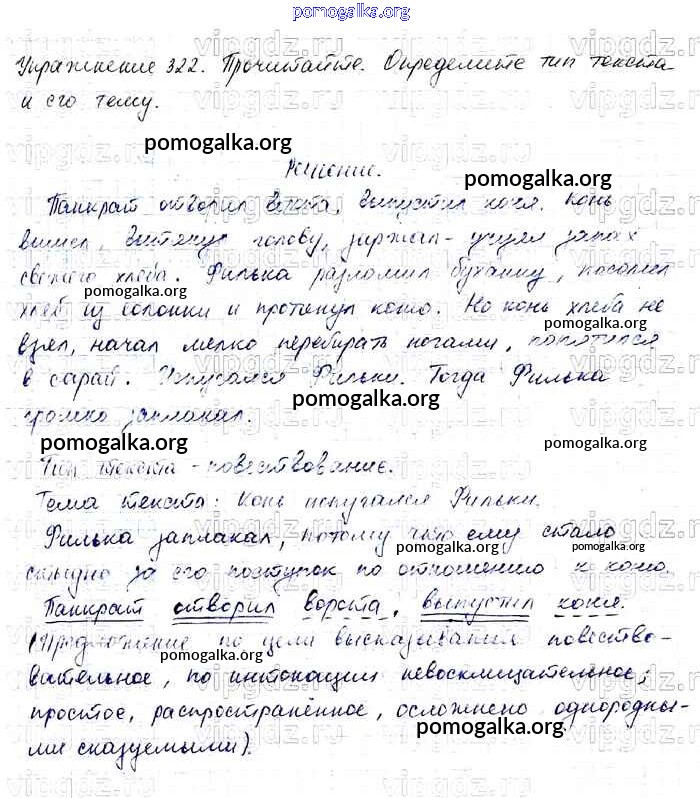 pomogalka.org
Упражнение 322. Прочитайте. Определите тип текста
и его тему.
pomogalka.org
Решение.
pomogalka.org
Панкрат отворил ворота, выпустил коня. Конь
вышел, вытянул голову, заржал - учуял запах
свежего хлеба. Филька разломил буханку, посолил
pomogalka.org
хлеб из солонки и протянул коню. Но конь хлеба не
pomogalka.org
взял, начал мелко перебирать ногами, попятился
в сарай. Испугался Фильки. Тогда Филька
pomogalka.org
громко заплакал.
pomogalka.org
pomogalka.org
Тип текста - повествование.
Тема текста: Конь испугался Фильки.
Филька заплакал, потому что ему стало
pomogalka.org
pomogalka.org
стыдно за его поступок по отношению к коню.
Панкрат отворил ворота, выпустил коня.
(Предложение по цели высказывания повество-
pomogalka.org
вательное, по интонации невосклицательное,
простое, распространённое, осложнено однородны-
pomogalka.org
ми сказуемыми).
vipgdz.ru